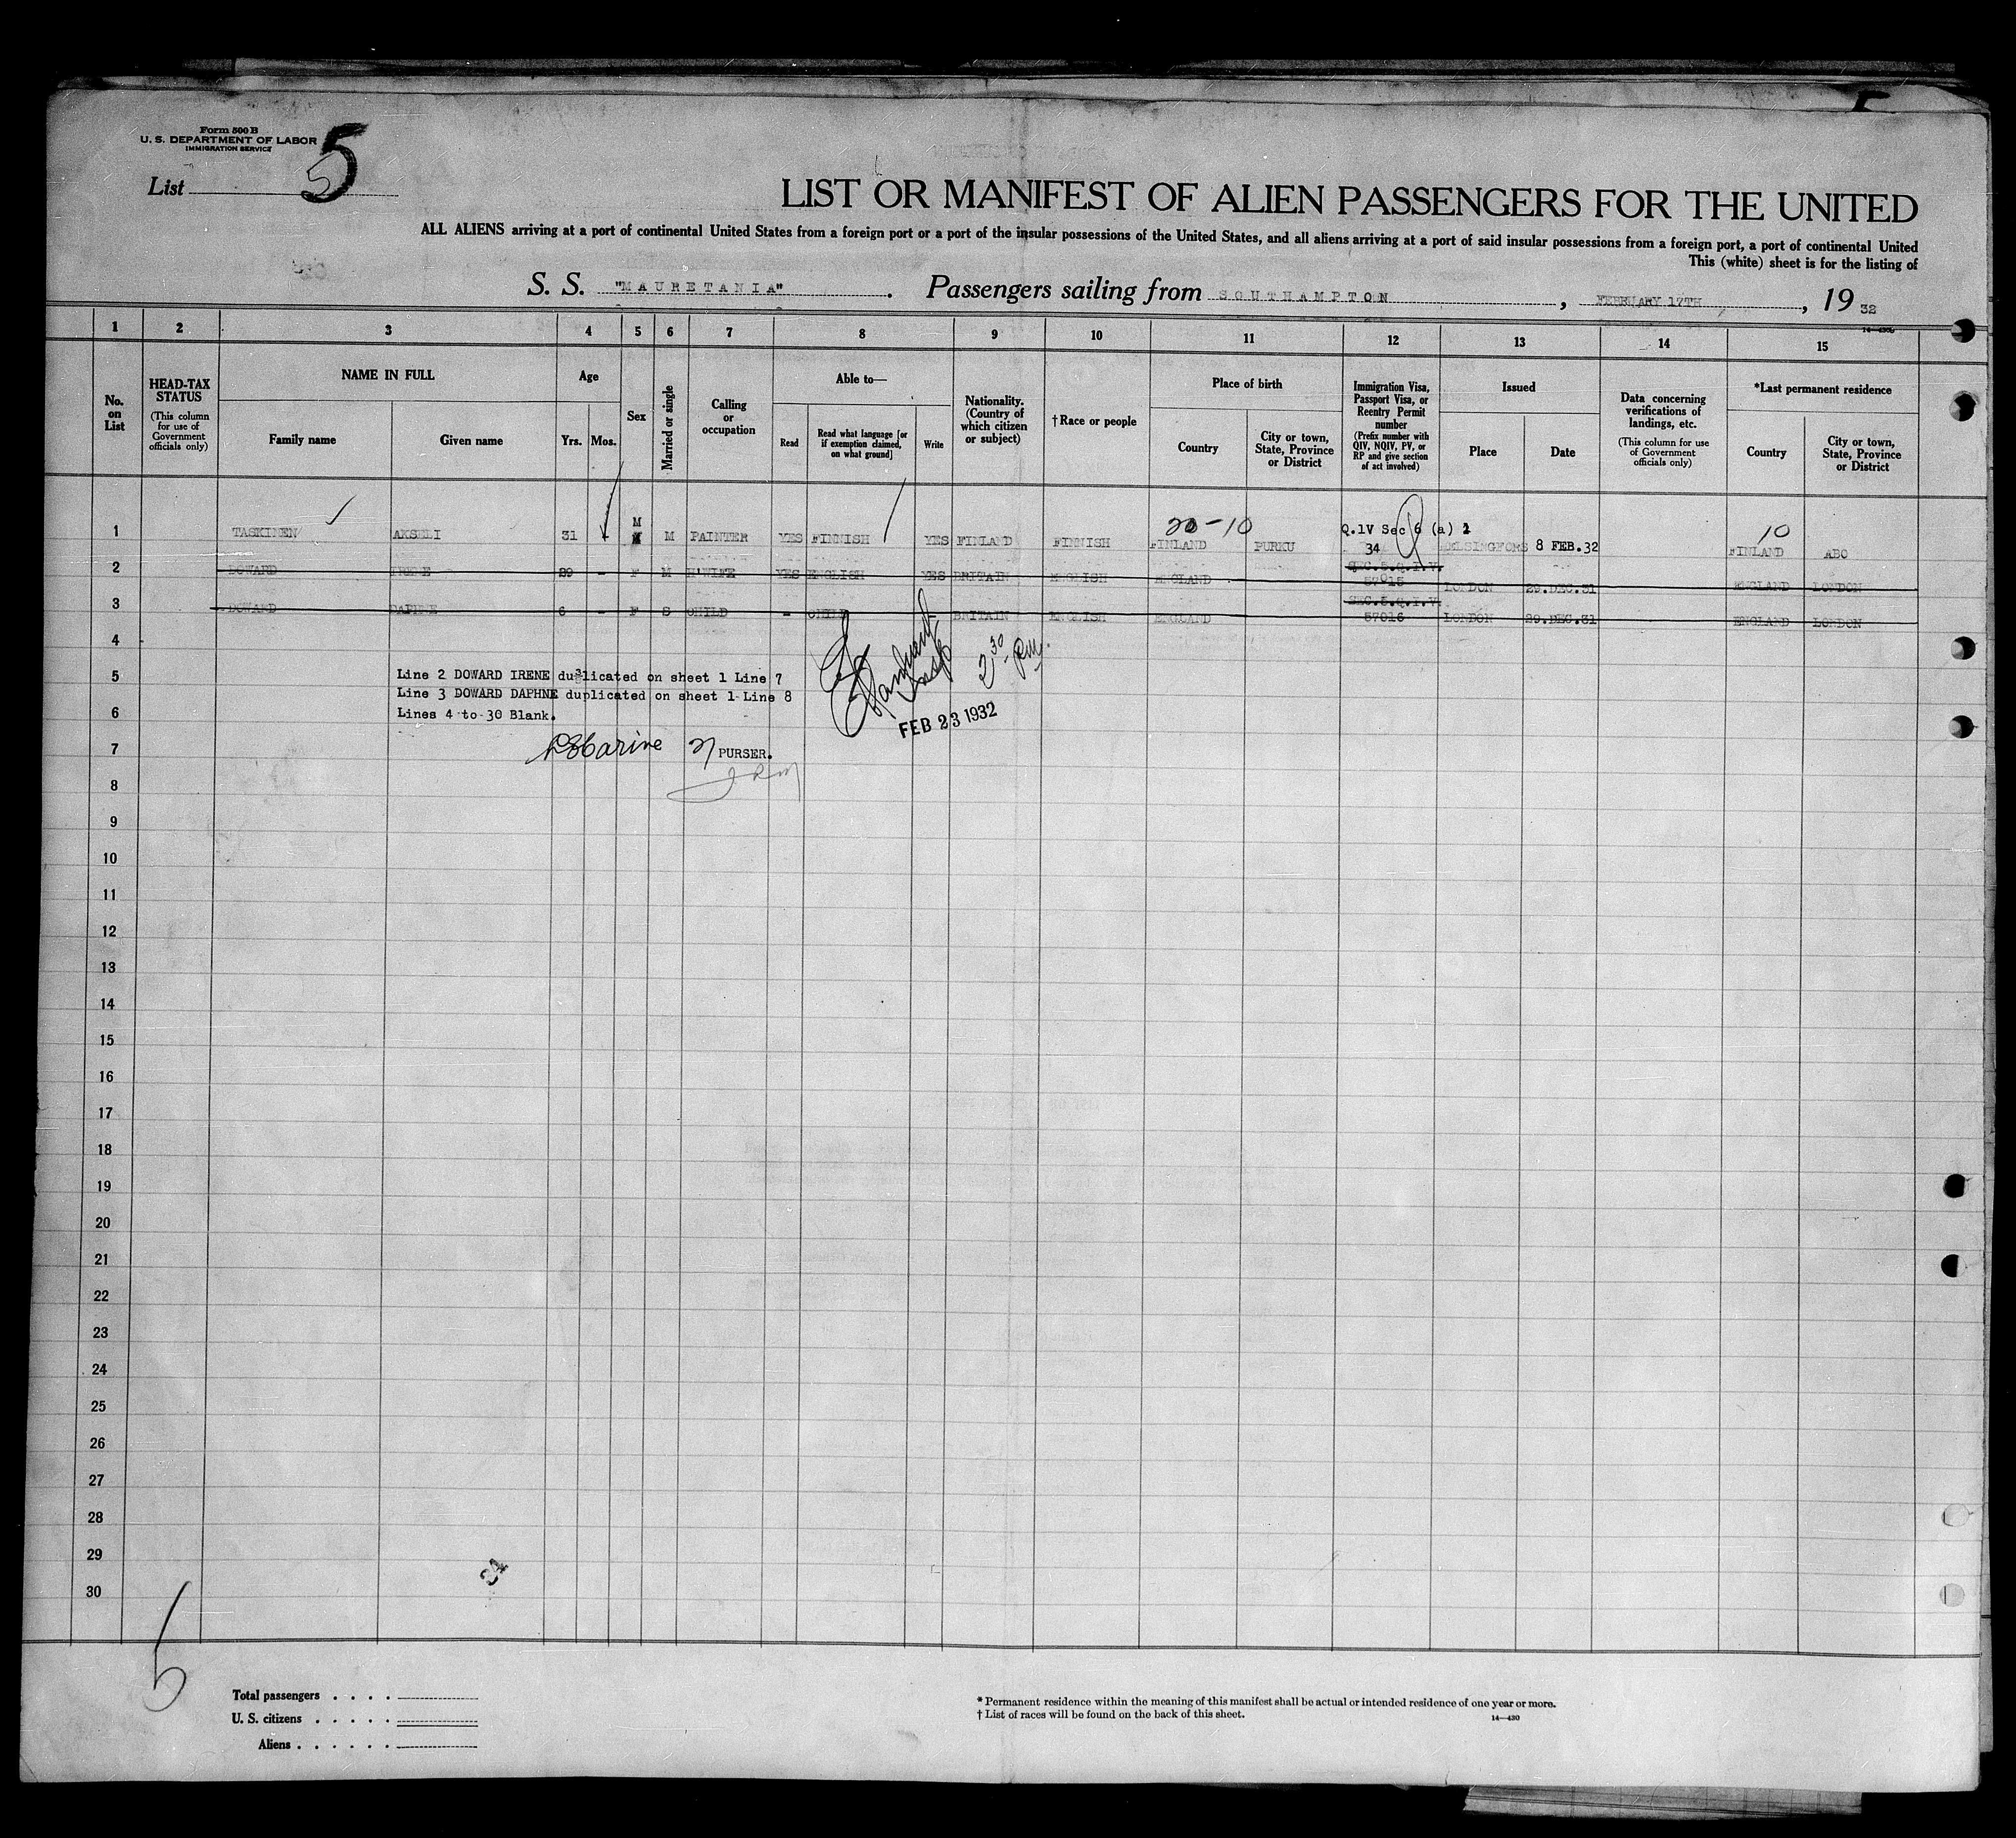 Form 500 B
U. S. DEPARTMENT OF LABOR
IMMIGRATION SERVICE
List 5
5
LIST OR MANIFEST OF ALIEN PASSENGERS FOR THE UNITED
ALL ALIENS arriving at a port of continental United States from a foreign port or a port of the insular possessions of the United States, and all aliens arriving at a port of said insular possessions from a foreign port, a port of continental United
This (white) sheet is for the listing of
S. S. "MAURETANIA". Passengers sailing from SOUTHAMPTON, FEBRUARY 17TH, 1932
1 2 3 4 5 6 7 8 9 10 11 12 13 14 15
No. on List
HEAD-TAX STATUS
(This column for use of Government officials only)
NAME IN FULL
Family name Given name
Age
Yrs. Mos.
Sex
Married or single
Calling or occupation
Able to—
Read
Read what language [or if exemption claimed, on what ground]
Write
Nationality. (Country of which citizen or subject)
†Race or people
Place of birth
Country
City or town, State, Province or District
Immigration Visa, Passport Visa, or Reentry Permit number
(Prefix number with QIV, NQIV, PV, or RP and give section of act involved)
Issued
Place Date
Data concerning verifications of landings, etc.
(This column for use of Government officials only)
*Last permanent residence
Country
City or town, State, Province or District
20-10
10
M Q.1V Sec 6 (a) 2
1 TASKINEN AKSELI 31 M PAINTER YES FINNISH YES FINLAND FINNISH FINLAND PURKU 34 HELSINGFORS 8 FEB.32 FINLAND ABO
SEC.5.Q.I.V.
2 DOWARD IRENE 29 - F M H'WIFE YES ENGLISH YES BRITAIN ENGLISH ENGLAND 57015 LONDON 29.DEC.31 ENGLAND LONDON
SEC.5.Q.I.V.
3 DOWARD DAPHNE 6 - F S CHILD - CHILD - BRITAIN ENGLISH ENGLAND 57016 LONDON 29.DEC.31 ENGLAND LONDON
4
5 Line 2 DOWARD IRENE duplicated on sheet 1 Line 7
Line 3 DOWARD DAPHNE duplicated on sheet 1 Line 8
6 Lines 4 to 30 Blank.
Insp
2 30 P.M.
FEB 23 1932
7 PURSER.
8
9
10
11
12
13
14
15
16
17
18
19
20
21
22
23
24
25
26
27
28
29
30
Total passengers . . . .
U. S. citizens . . . . .
Aliens . . . . . .
* Permanent residence within the meaning of this manifest shall be actual or intended residence of one year or more.
† List of races will be found on the back of this sheet.
14—430